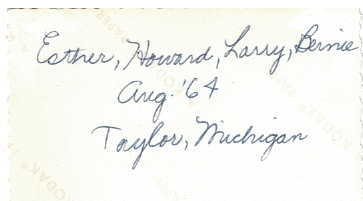 Esther, Howard, Larry, Bernie
Aug. '64
Taylor, Michigan
KODAK